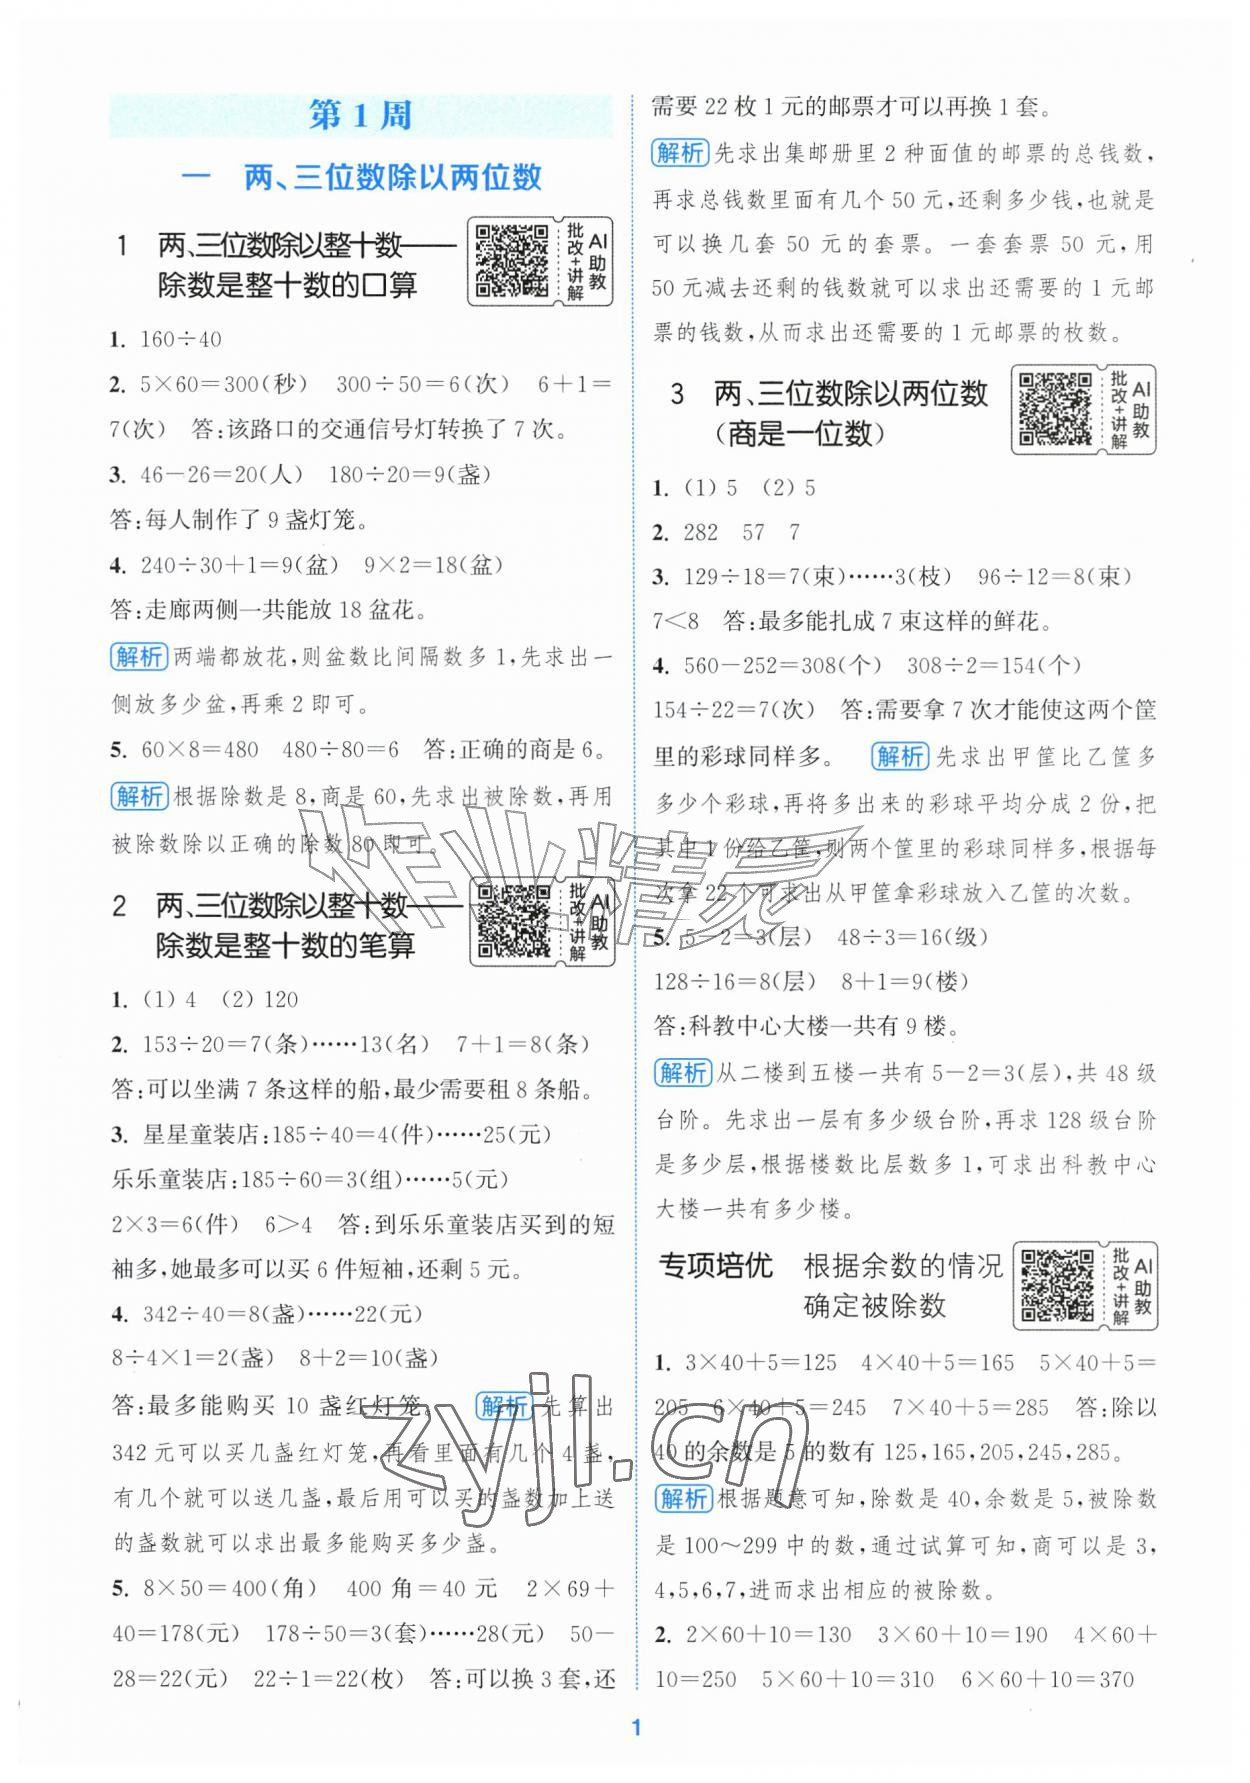 第1周
一 两、三位数除以两位数
1 两、三位数除以整十数——
除数是整十数的口算
批改+讲解 AI助教
1. 160÷40
2. 5×60=300(秒) 300÷50=6(次) 6+1=
7(次) 答:该路口的交通信号灯转换了7次。
3. 46-26=20(人) 180÷20=9(盏)
答:每人制作了9盏灯笼。
4. 240÷30+1=9(盆) 9×2=18(盆)
答:走廊两侧一共能放18盆花。
解析 两端都放花,则盆数比间隔数多1,先求出一
侧放多少盆,再乘2即可。
5. 60×8=480 480÷80=6 答:正确的商是6。
解析 根据除数是8,商是60,先求出被除数,再用
被除数除以正确的除数80即可。
2 两、三位数除以整十数——
除数是整十数的笔算
批改+讲解 AI助教
1. (1)4 (2)120
2. 153÷20=7(条)……13(名) 7+1=8(条)
答:可以坐满7条这样的船,最少需要租8条船。
3. 星星童装店:185÷40=4(件)……25(元)
乐乐童装店:185÷60=3(组)……5(元)
2×3=6(件) 6>4 答:到乐乐童装店买到的短
袖多,她最多可以买6件短袖,还剩5元。
4. 342÷40=8(盏)……22(元)
8÷4×1=2(盏) 8+2=10(盏)
答:最多能购买10盏红灯笼。 解析 先算出
342元可以买几盏红灯笼,再看里面有几个4盏,
有几个就可以送几盏,最后用可以买的盏数加上送
的盏数就可以求出最多能购买多少盏。
5. 8×50=400(角) 400角=40元 2×69+
40=178(元) 178÷50=3(套)……28(元) 50-
28=22(元) 22÷1=22(枚) 答:可以换3套,还
需要22枚1元的邮票才可以再换1套。
解析 先求出集邮册里2种面值的邮票的总钱数,
再求总钱数里面有几个50元,还剩多少钱,也就是
可以换几套50元的套票。一套套票50元,用
50元减去还剩的钱数就可以求出还需要的1元邮
票的钱数,从而求出还需要的1元邮票的枚数。
3 两、三位数除以两位数
(商是一位数)
批改+讲解 AI助教
1. (1)5 (2)5
2. 282 57 7
3. 129÷18=7(束)……3(枝) 96÷12=8(束)
7<8 答:最多能扎成7束这样的鲜花。
4. 560-252=308(个) 308÷2=154(个)
154÷22=7(次) 答:需要拿7次才能使这两个筐
里的彩球同样多。 解析 先求出甲筐比乙筐多
多少个彩球,再将多出来的彩球平均分成2份,把
其中1份给乙筐,则两个筐里的彩球同样多,根据每
次拿22个可求出从甲筐拿彩球放入乙筐的次数。
5. 5-2=3(层) 48÷3=16(级)
128÷16=8(层) 8+1=9(楼)
答:科教中心大楼一共有9楼。
解析 从二楼到五楼一共有5-2=3(层),共48级
台阶。先求出一层有多少级台阶,再求128级台阶
是多少层,根据楼数比层数多1,可求出科教中心
大楼一共有多少楼。
专项培优 根据余数的情况
确定被除数
批改+讲解 AI助教
1. 3×40+5=125 4×40+5=165 5×40+5=
205 6×40+5=245 7×40+5=285 答:除以
40的余数是5的数有125,165,205,245,285。
解析 根据题意可知,除数是40,余数是5,被除数
是100~299中的数,通过试算可知,商可以是3,
4,5,6,7,进而求出相应的被除数。
2. 2×60+10=130 3×60+10=190 4×60+
10=250 5×60+10=310 6×60+10=370
作业精灵
zyjl.cn
1